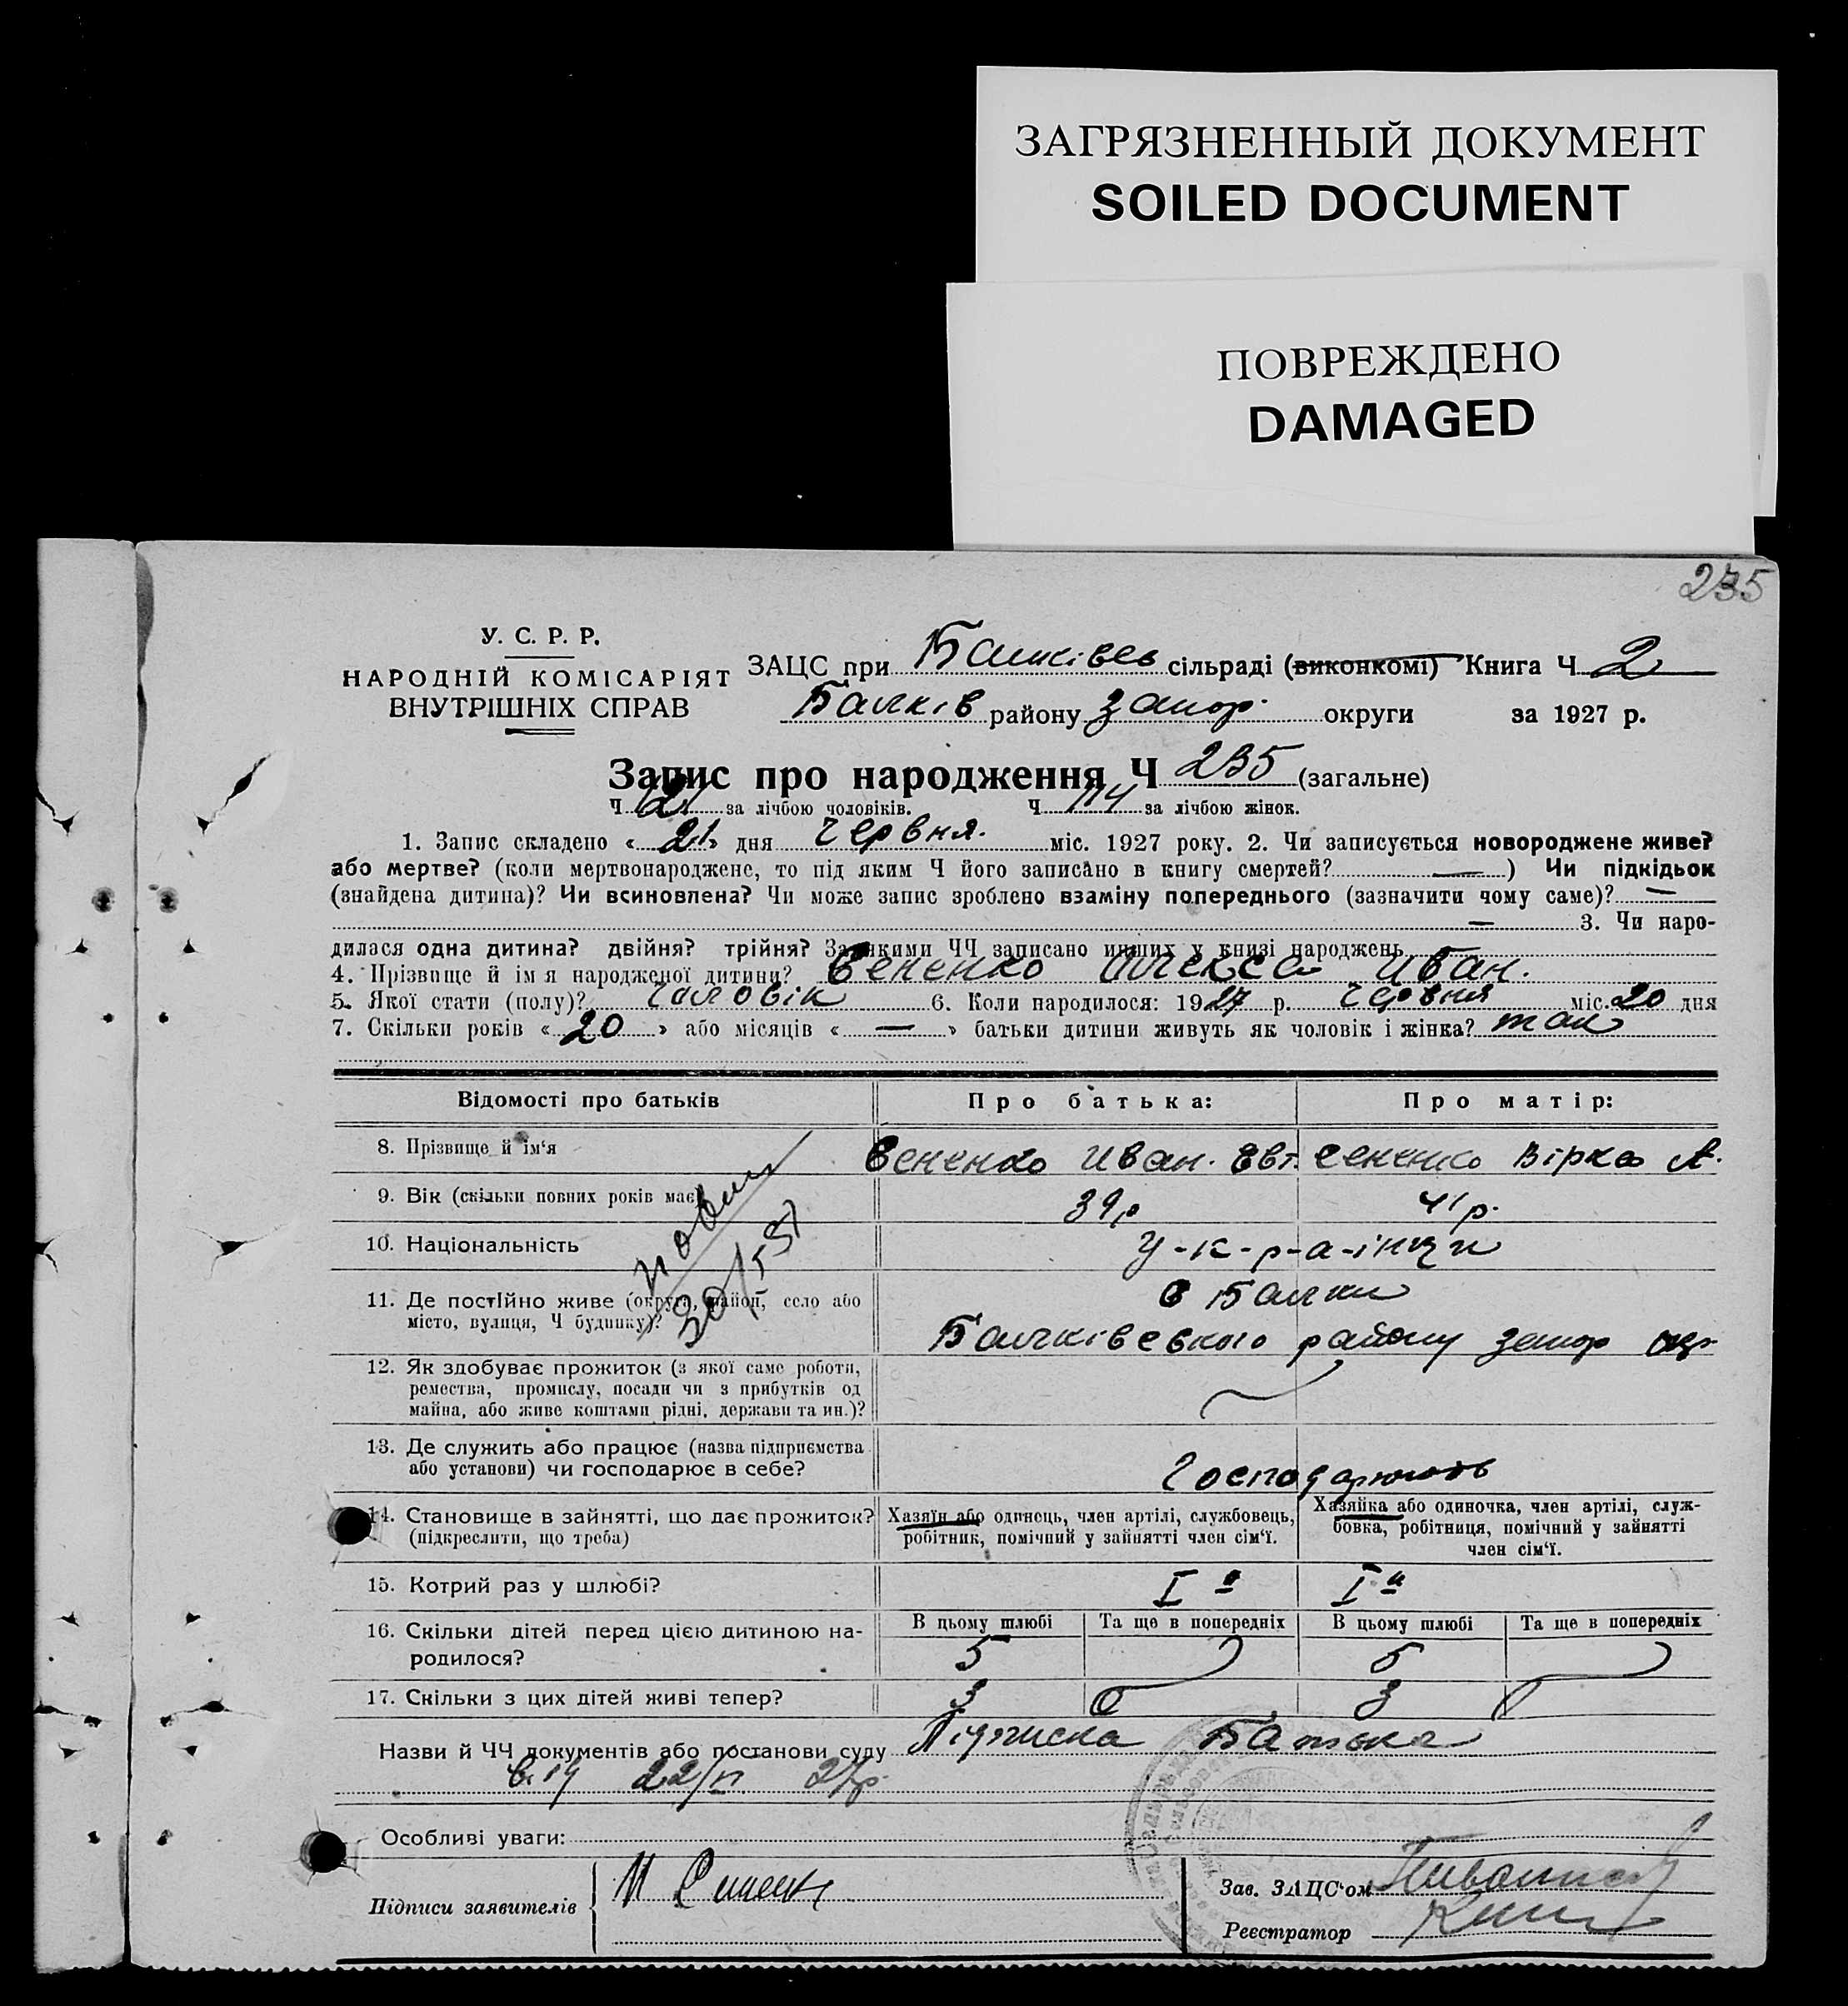 ЗАГРЯЗНЕННЫЙ ДОКУМЕНТ
SOILED DOCUMENT
ПОВРЕЖДЕНО
DAMAGED
235
У. С. Р. Р.
НАРОДНІЙ КОМІСАРІЯТ
ВНУТРІШНІХ СПРАВ
ЗАЦС при Балківсь сільраді (виконкомі) Книга Ч 2
Балків району Запор. округи за 1927 р.
Запис про народження Ч 235 (загальне)
Ч 121 за лічбою чоловіків. Ч 114 за лічбою жінок.
1. Запис складено « 21 » дня Червня. міс. 1927 року. 2. Чи записується новороджене живе?
або мертве? (коли мертвонароджене, то під яким Ч його записано в книгу смертей? — ) Чи підкідьок
(знайдена дитина)? Чи всиновлена? Чи може запис зроблено взаміну попереднього (зазначити чому саме)? —
— 3. Чи наро-
дилася одна дитина? двійня? трійня? За якими ЧЧ записано инших у книзі народжень
4. Прізвище й ім'я народженої дитини? Сененко Олекса Иван.
5. Якої стати (полу)? Чоловік 6. Коли народилося: 1927 р. Червня міс. 20 дня
7. Скільки років « 20 » або місяців « — » батьки дитини живуть як чоловік і жінка? так
Відомості про батьків Про батька: Про матір:
8. Прізвище й ім'я Сененко Иван. Евт. Сененко Вірка А.
9. Вік (скільки повних років має) 39р 41р.
10. Національність У-к-р-а-їнци
11. Де постійно живе (округа, район, село або
місто, вулиця, Ч будинку)?
с Балки
Балчківського району запор окр
12. Як здобуває прожиток (з якої саме роботи,
ремества, промислу, посади чи з прибутків од
майна, або живе коштами рідні, держави та ин.)?
13. Де служить або працює (назва підприємства
або установи) чи господарює в себе?
Господарюють
14. Становище в зайнятті, що дає прожиток?
(підкреслити, що треба)
Хазяїн або одинець, член артілі, службовець,
робітник, помічний у зайнятті член сім'ї.
Хазяйка або одиночка, член артілі, служ-
бовка, робітниця, помічний у зайнятті
член сім'ї.
15. Котрий раз у шлюбі? I й I й
16. Скільки дітей перед цією дитиною на-
родилося?
В цьому шлюбі Та ще в попередніх В цьому шлюбі Та ще в попередніх
5 5
17. Скільки з цих дітей живі тепер? 3 3
Назви й ЧЧ документів або постанови суду Підписка Батька
від 22/VI 27р.
Особливі уваги:
Підписи заявителів
Зав. ЗАЦС'ом
Реєстратор